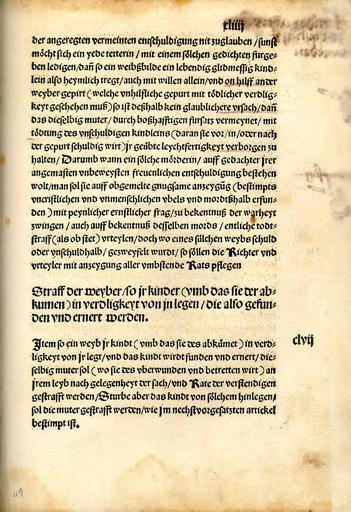 xliiij
der angeregten vermeinten entschuldigung nit zuglauben / sunst
möcht sich ein yede tetterin / mit einem sölchen gedichten fürge-
ben ledigen / dañ so ein weibßbilde ein lebendig glidmessig kind-
lein also heymlich tregt / auch mit willen allein / vnd on hilff ander
weyber gepirt (welche vnhilffliche gepurt mit tödlicher verdlig-
keyt geschehen muß) so ist deßhalb kein glaublichere vrsach / dañ
das dieselbig muter / durch boßhafftigen fürsatz vermeynet / mit
tödtung des vnschuldigen kindleins (daran sie vor / in / oder nach
der gepurt schuldig wirt) jr geübte leychtfertigkeyt verborgen zu
halten / Darumb wann ein sölche mörderin / auff gedachter jrer
angemasten vnbeweysten freuenlichen entschuldigung bestehen
wolt / man sol sie auff obgemelte gnugsame anzeygũg (bestimpts
vncristlichen vnd vnmenschlichen vbels vnd mordßhalb erfun-
den) mit peynlicher ernstlicher frag / zu bekentnuß der warheyt
zwingen / auch auff bekentnuß desselben mords / entliche todt-
straff (als ob stet) vrteylen / doch wo eines sülchen weybs schuld
oder vnschuldhalb / gezweyfelt wurdt / so söllen die Richter vnd
vrteyler mit anzeygung aller vmbstende Rats pflegen
Straff der weyber / so jr kinder (vmb das sie der ab-
kumen) in verdligkeyt von jn legen / die also gefun-
den vnd ernert werden.
clvij
Item so ein weyb jr kindt (vmb das sie des abkũmet) in verd-
ligkeyt von jr legt / vnd das kindt wirdt funden vnd ernert / die-
selbig muter sol (wo sie des vberwunden vnd betretten wirt) an
jrem leyb nach gelegenheyt der sach / vnd Rate der verstendigen
gestrafft werden / Sturbe aber das kindt von sölchem hinlegen /
sol die muter gestrafft werden / wie jm nechstvorgesatzten artickel
bestimpt ist.